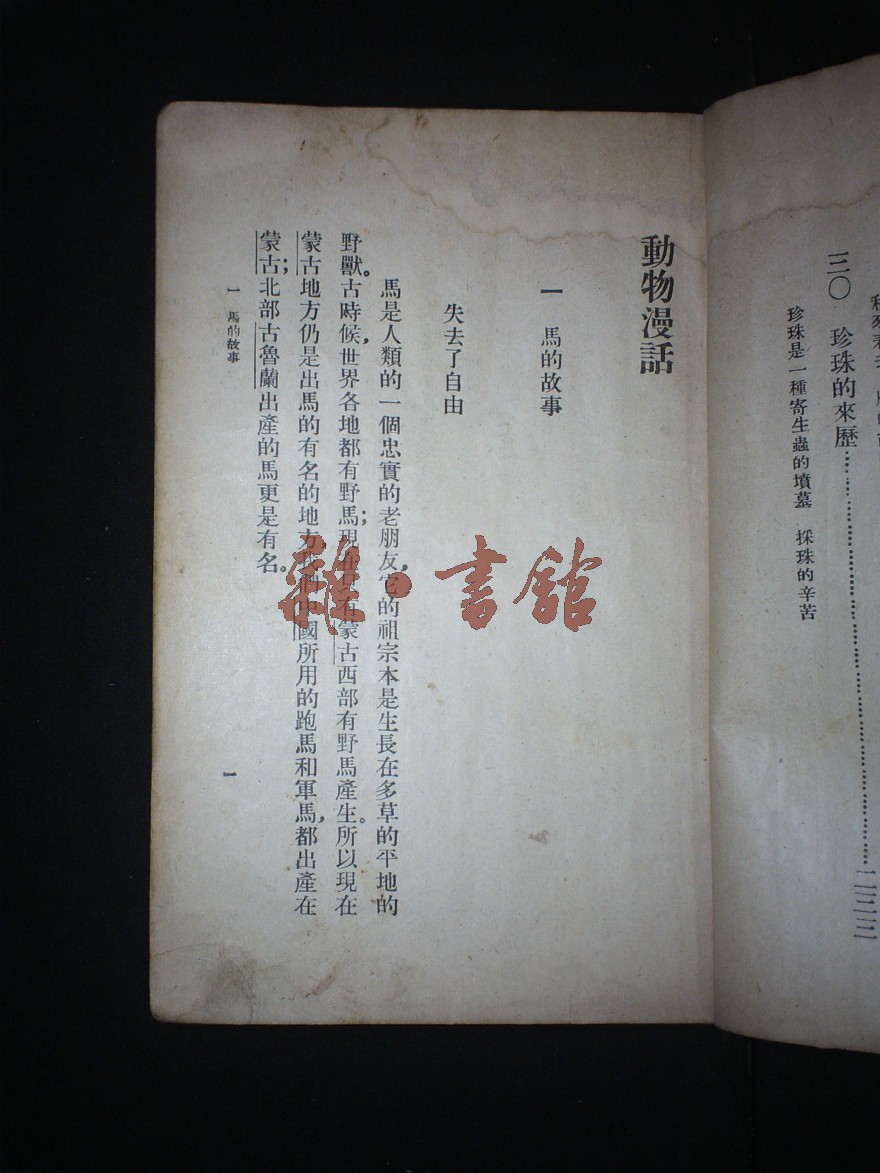 三〇　珍珠的來歷……………………………二二三
珍珠是一種寄生蟲的墳墓　採珠的辛苦
動物漫話
一　馬的故事
失去了自由
馬是人類的一個忠實的老朋友，它的祖宗本是生長在多草的平地的
野獸。古時候，世界各地都有野馬；現在只有蒙古西部有野馬產生。所以現在
蒙古地方仍是出馬的有名的地方，我們中國所用的跑馬和軍馬，都出產在
蒙古；北部古魯蘭出產的馬更是有名。
一　馬的故事
一
雜·書館